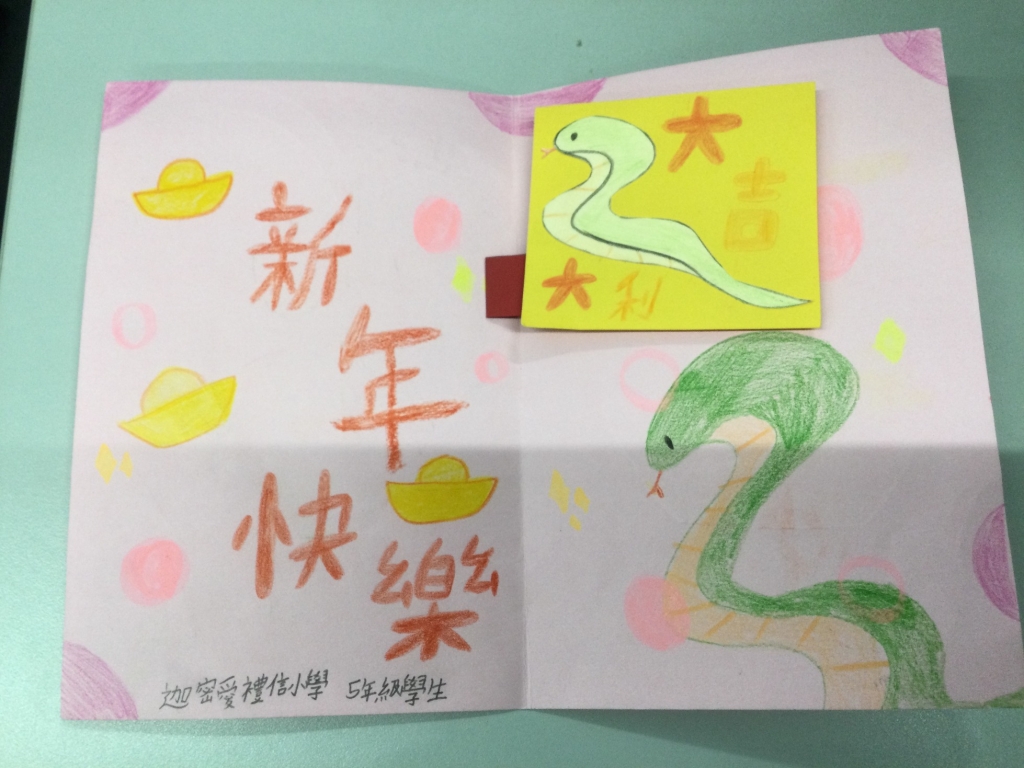 新年快樂
大吉
大利
迦密愛禮信小學 5年級學生